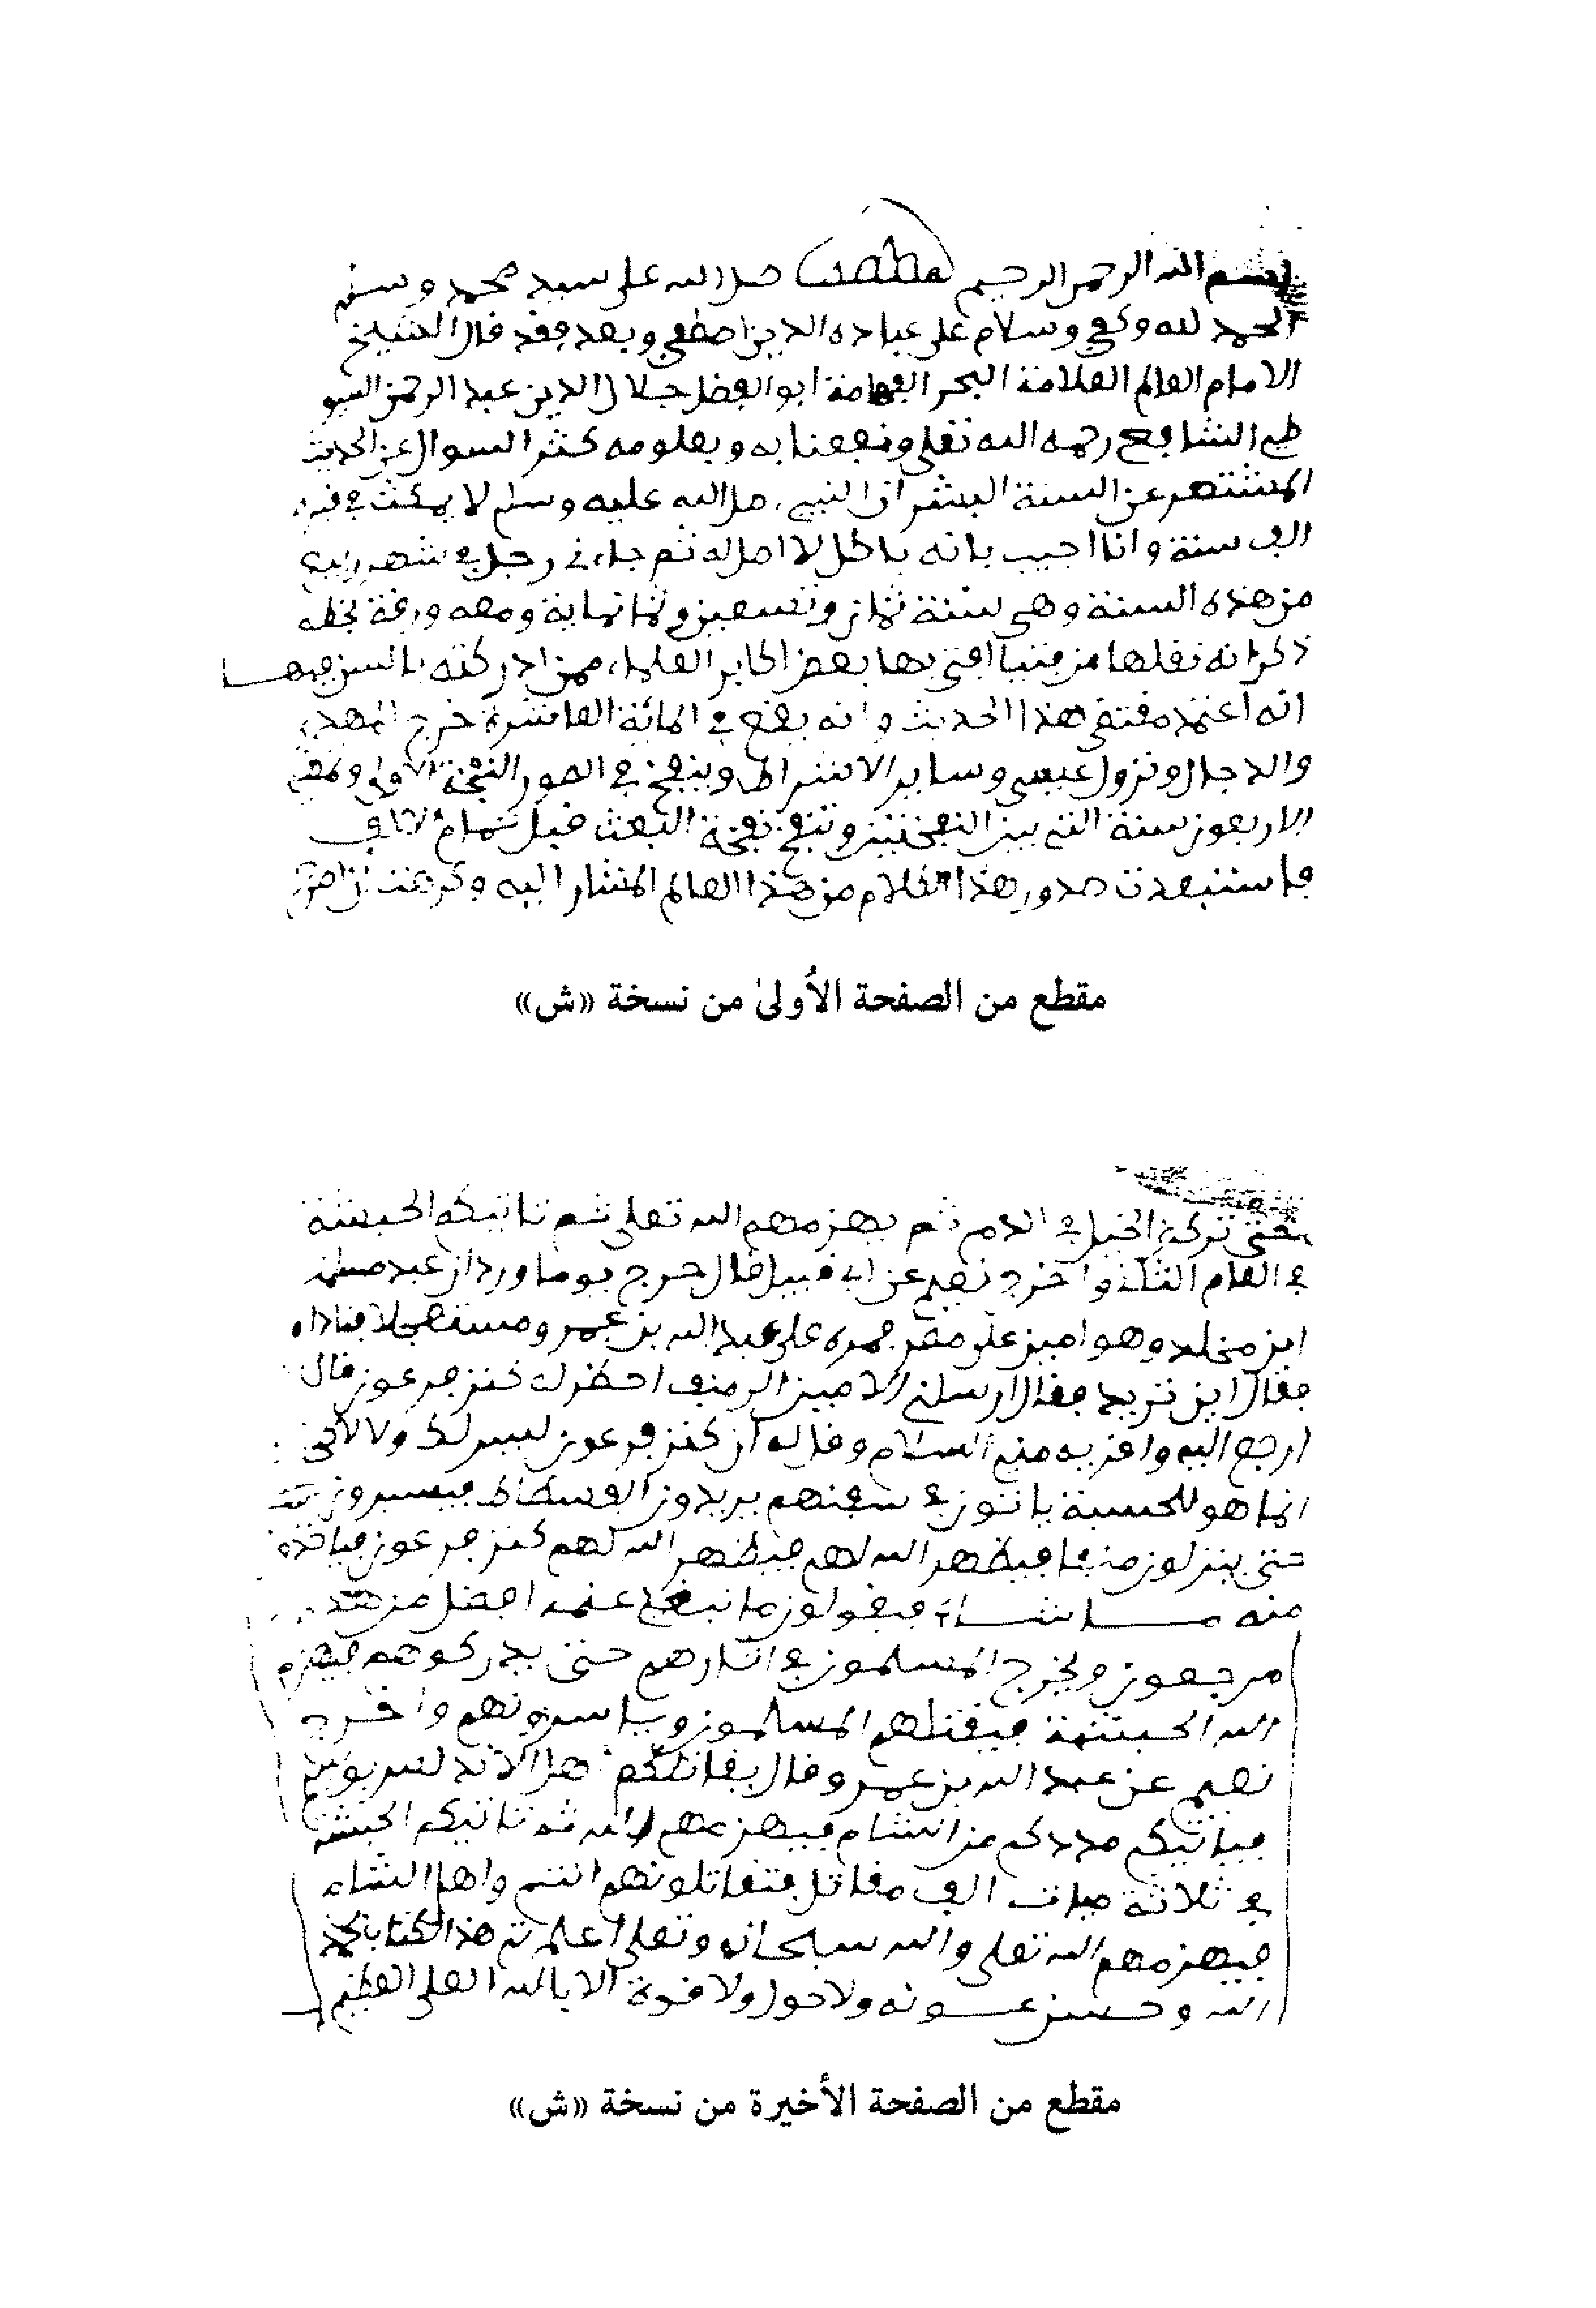 بسم الله الرحمن الرحيم صلى الله على سيد محمد وسلم
الحمد لله وكفى وسلام على عباده الذين اصطفى وبعد فقد قال الشيخ
الامام العالم العلامة البحر الفهامة ابو الفضل جلال الدين عبد الرحمن السيو
طي الشافعي رحمه الله تعلى ونفعنا به وبعلومه كثر السوال عن الحديث
المشتهر عن السنة البشر ان النبي صلى الله عليه وسلم لا يمكث في قبره
الف سنة وانا اجيب بانه باطل لا اصل له ثم جاءني رجل في شهر ربيع
من هذه السنة وهي سنة ثمان وتسعين وثمانماية ومعه ورقة بخطه
ذكر انه نقلها من فتيا افتى بها بعض اكابر العلماء ممن ادركته بالسن فيها
انه اعتمد مقتضى هذا الحديث وانه يقع في المائة العاشرة خروج المهدي
والدجال ونزول عيسى وساير الاشراط وينفخ في الصور النفخة الاولى وتمضي
الاربعون سنة التي بين النفختين وتنفخ نفخة البعث قبل تمام الالف
فاستبعدت صدور هذا الكلام من هذا العالم المشار اليه وكرهت ان اصرح
مقطع من الصفحة الأولىٰ من نسخة «ش»
حتى تركض الخيل في الدم ثم يهزمهم الله تعلى ثم تاتيكم الحبشة
في العام الثالث واخرج نعيم عن ابي قبيل قال خرج يوما وردان عبد مسلمة
ابن مخلد وهو امين على مصر فمر على عبد الله بن عمر ومستعجلا فناداه
فقال اين تريد فقال ارسلني الامين الى منف احفر له كنز فرعون قال
ارجع اليه واقريه مني السلام وقل له ان كنز فرعون ليس لك ولا لا
انما هو للحبشة ياتون في سفنهم يريدون الفسطاط فيسيرون
حتى ينزلون منفا فيظهر الله لهم فيظهر الله لهم كنز فرعون فياخذون
منه ما شاء فيقولون ما نبغي غنمه افضل من هذه
فرجعون ويخرج المسلمون في اثارهم حتى يدركوهم فيهزم
الله الحبشة فيقتلهم المسلمون وياسرونهم واخرج
نعيم عن عبد الله بن عمر وقال يقاتلكم اهل الاندلس بوسيم
فياتيكم مددكم من الشام فيهزمهم الله ثم تاتيكم الحبشة
في ثلاثة ميات الف مقاتل فتقاتلونهم انتم واهل الشام
فيهزمهم الله تعلى والله سبحانه وتعلى اعلم تم هذا الكتاب بحمد
الله وحسن عونه ولا حول ولا قوة الا بالله العلي العظيم
مقطع من الصفحة الأخيرة من نسخة «ش»